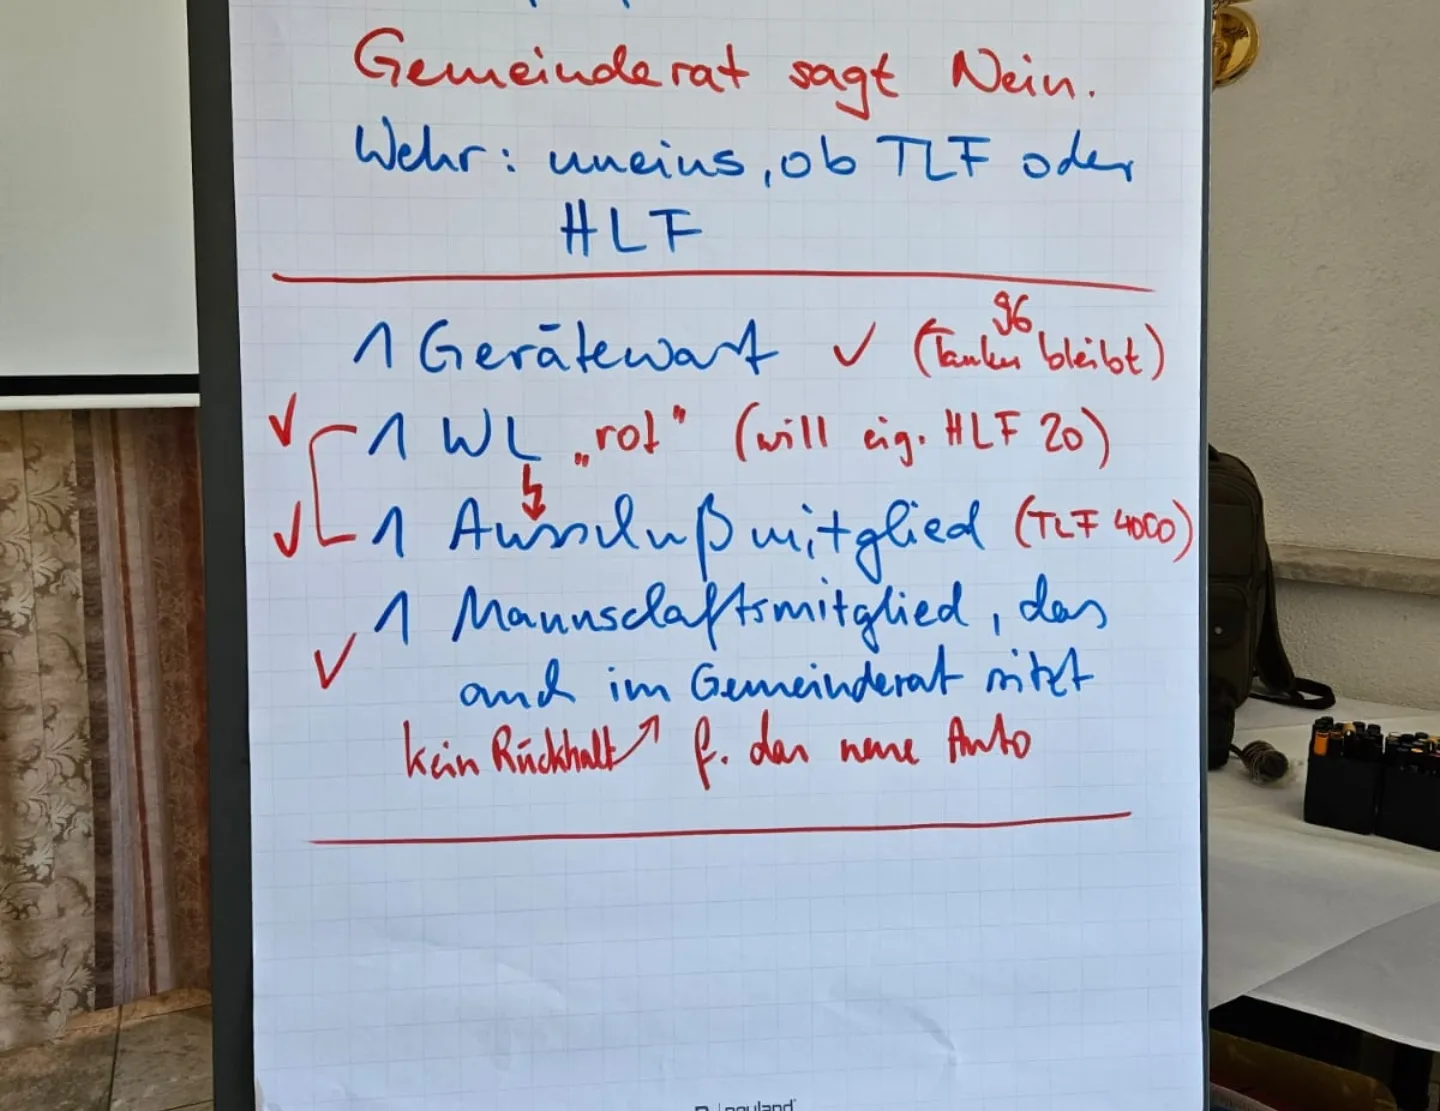 Gemeinderat sagt Nein.
Wehr: uneins, ob TLF oder
HLF
1 Gerätewart ✓ (Tanker bleibt)
96
✓ 1 WL „rot" (will eig. HLF 20)
✓ 1 Ausschußmitglied (TLF 4000)
1 Mannschaftsmitglied, das
✓ auch im Gemeinderat sitzt
kein Rückhalt f. das neue Auto
neuland